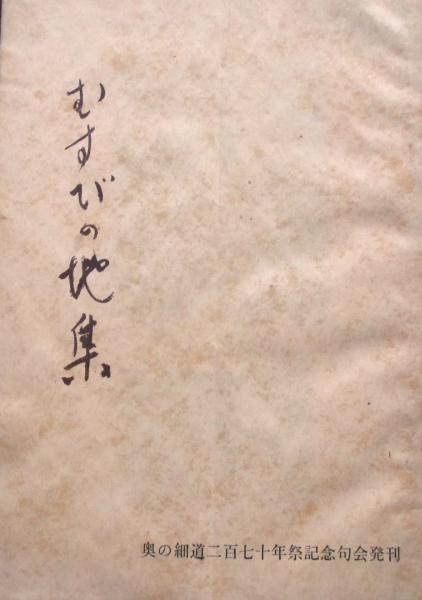 むすびの地集
奥の細道二百七十年祭記念句会発刊